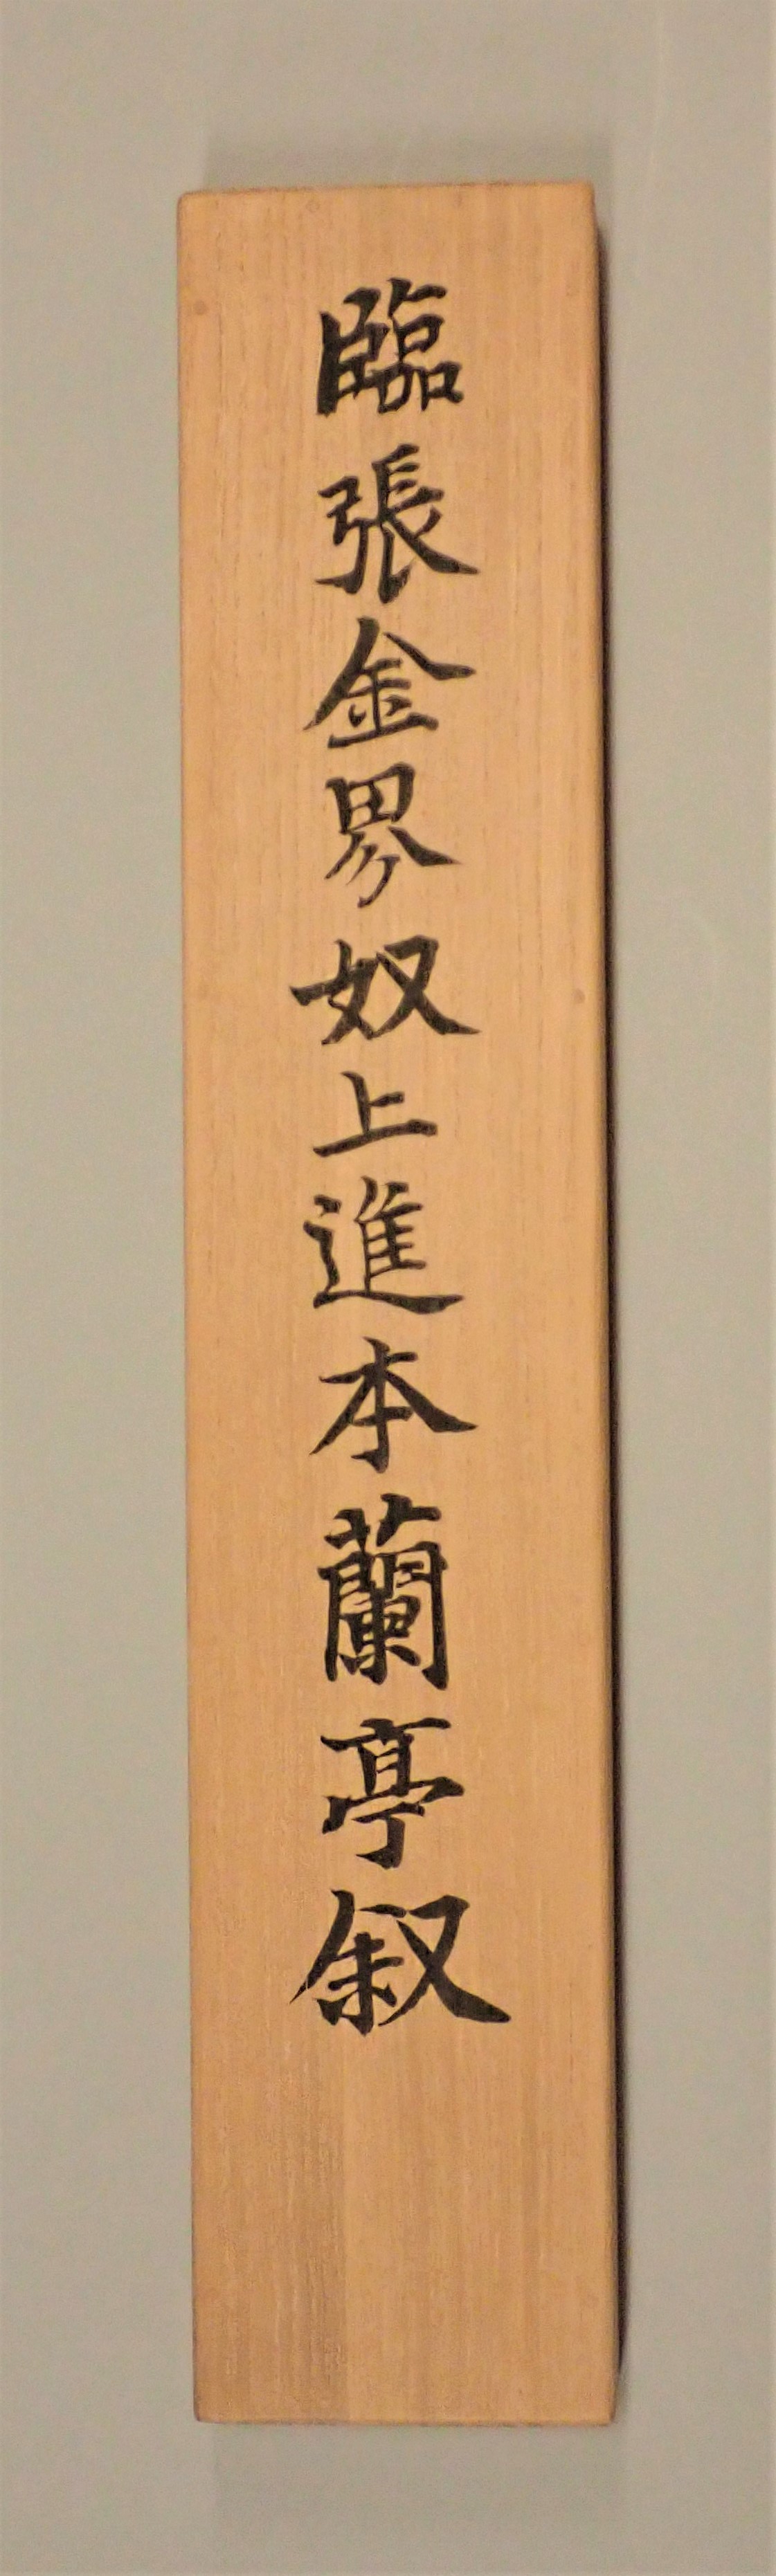 臨張金界奴上進本蘭亭叙